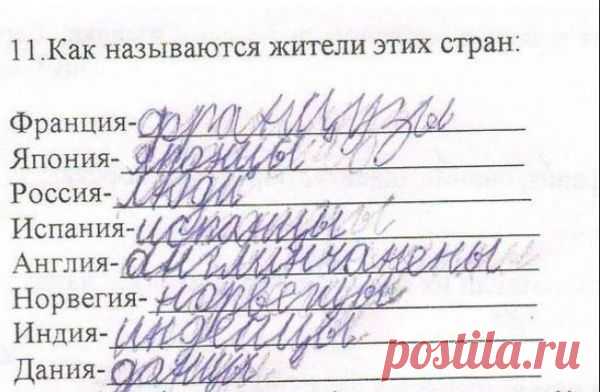 11.Как называются жители этих стран:
Франция-французы
Япония-японцы
Россия-люди
Испания-испанцы
Англия-англинчанены
Норвегия-норвегцы
Индия-индейцы
Дания-данцы
postila.ru